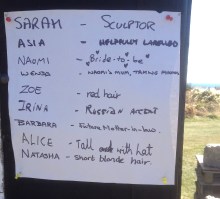 SARAH - SCULPTOR
ASIA - HELPFULLY LABELLED
NAOMI - "Bride-to-be"
WENDA - NAOMI'S MUM,
ZOE - red hair
IRINA - RUSSIAN ACCENT
BARBARA - Future Mother-in-law.
ALICE - Tall with hat
NATASHA - short blonde hair.